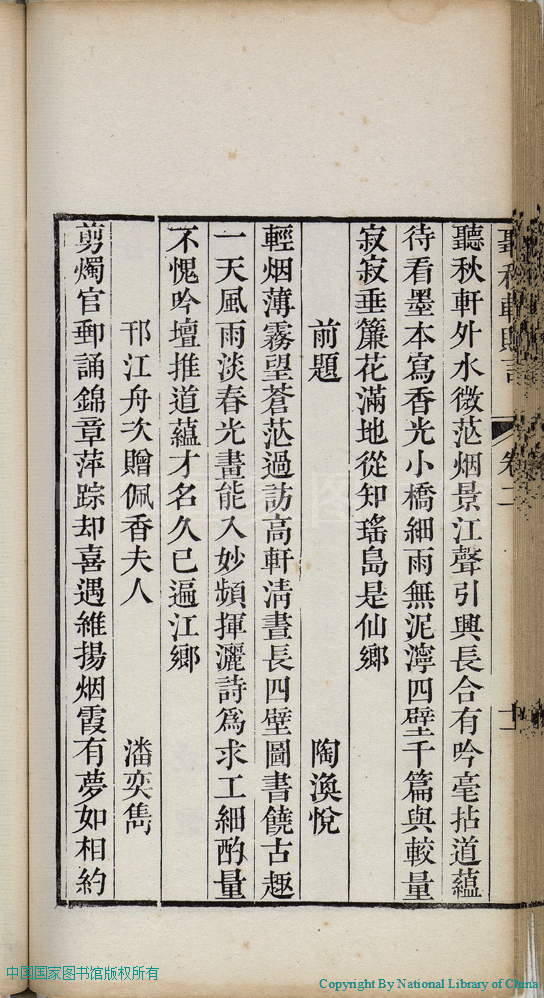 聽秋軒贈言 卷二 十一
聽秋軒外水微茫烟景江聲引興長合有吟毫拈道蘊
待看墨本寫香光小橋細雨無泥濘四壁千篇與較量
寂寂垂簾花滿地從知瑤島是仙鄉
前題 陶渙悅
輕烟薄霧望蒼茫過訪高軒清晝長四壁圖書饒古趣
一天風雨淡春光畫能入妙頻揮灑詩爲求工細酌量
不愧吟壇推道蘊才名久已遍江鄉
邗江舟次贈佩香夫人 潘奕雋
剪燭官郵誦錦章萍踪却喜遇維揚烟霞有夢如相約
中国国家图书馆版权所有
Copyright By National Library of China